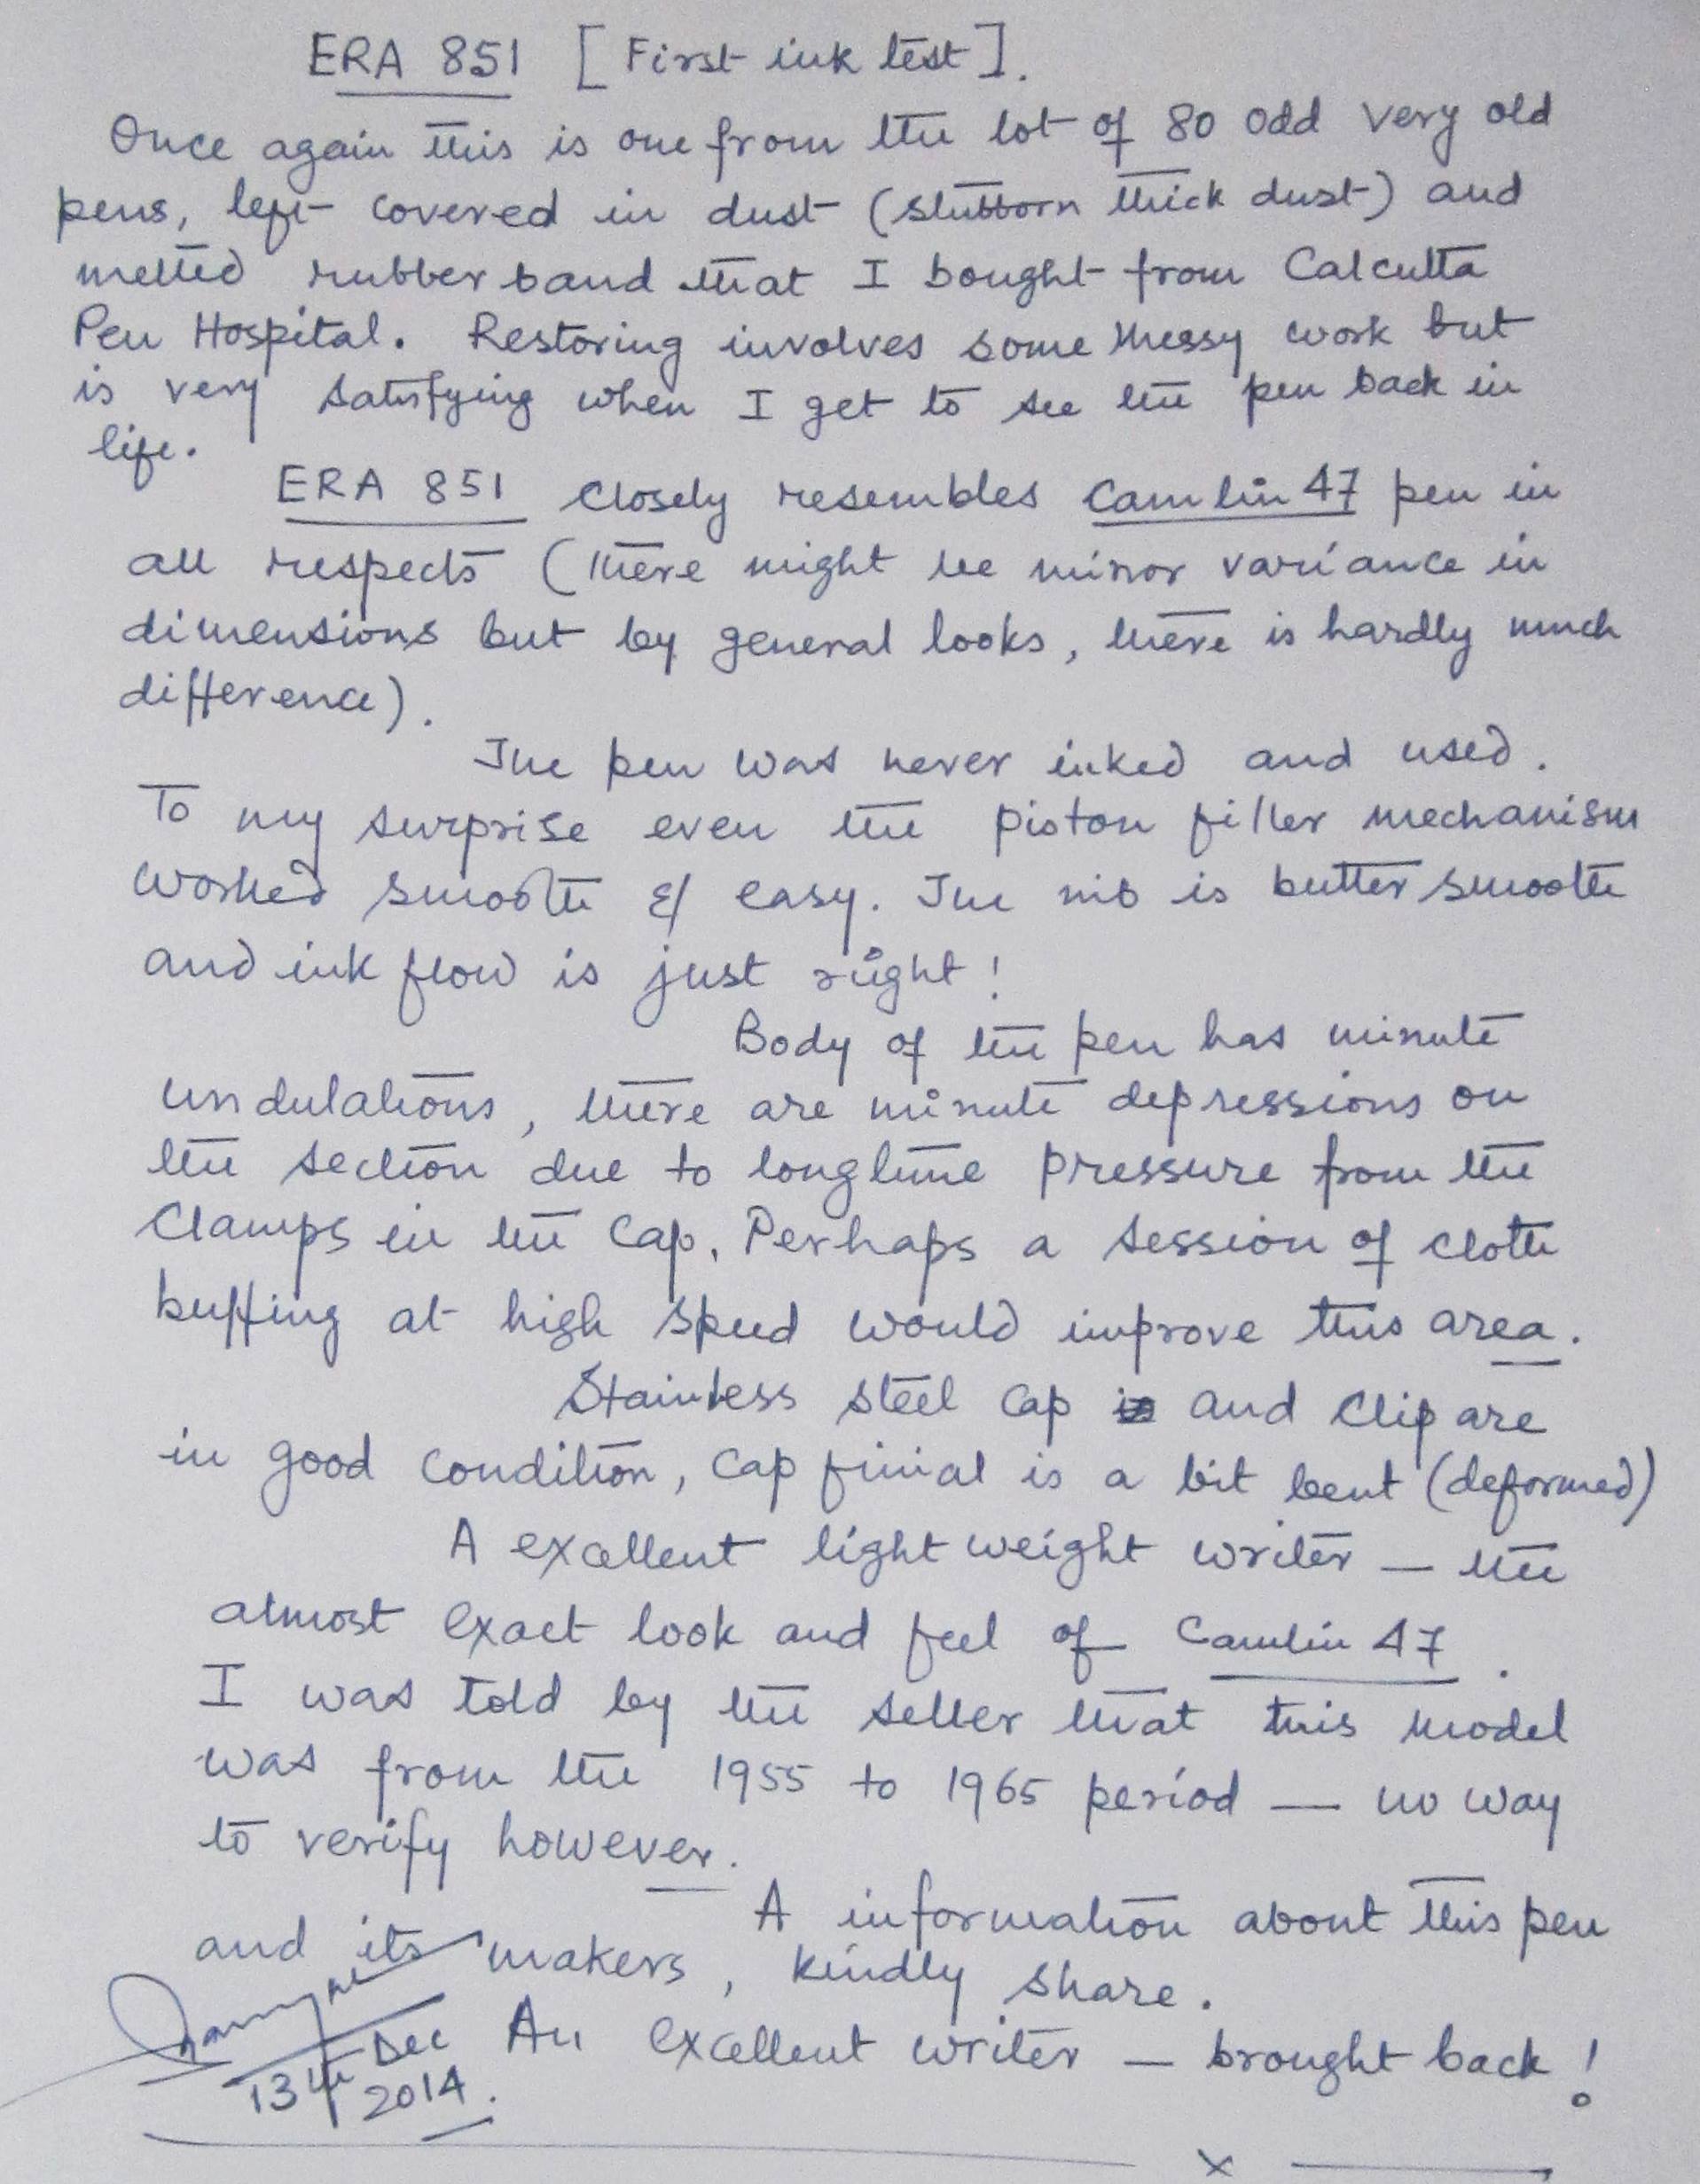 ERA 851 [First ink test].
Once again this is one from the lot of 80 odd very old
pens, left covered in dust (stubborn thick dust) and
melted rubber band that I bought from Calcutta
Pen Hospital. Restoring involves some messy work but
is very satisfying when I get to see the pen back in
life.
ERA 851 closely resembles Camlin 47 pen in
all respects (there might be minor variance in
dimensions but by general looks, there is hardly much
difference).
The pen was never inked and used.
To my surprise even the piston filler mechanism
worked smooth & easy. The nib is butter smooth
and ink flow is just right!
Body of the pen has minute
undulations, there are minute depressions on
the section due to longtime pressure from the
clamps in the cap. Perhaps a session of cloth
buffing at high speed would improve this area.
Stainless steel cap is and clip are
in good condition, cap finial is a bit bent (deformed)
A excellent light weight writer — the
almost exact look and feel of Camlin 47.
I was told by the seller that this model
was from the 1955 to 1965 period — no way
to verify however.
A information about this pen
and its makers, kindly share.
An excellent writer — brought back!
13th Dec
2014.
x